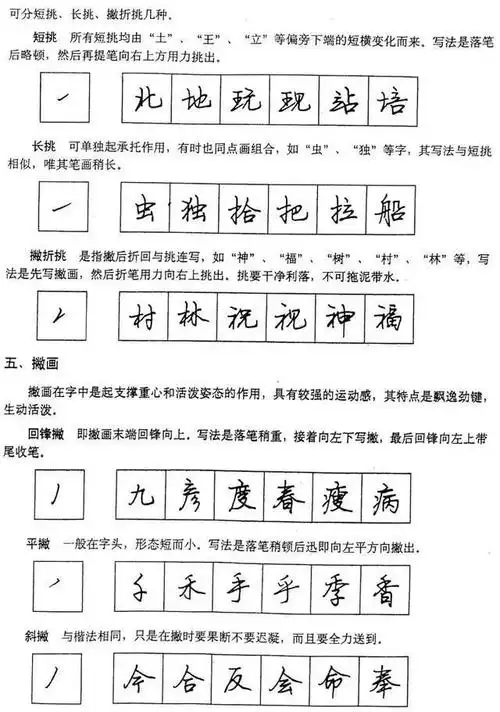 可分短挑、长挑、撇折挑几种。
短挑 所有短挑均由“土”、“王”、“立”等偏旁下端的短横变化而来。写法是落笔
后略顿，然后再提笔向右上方用力挑出。
北 地 玩 现 站 培
长挑 可单独起承托作用，有时也同点画组合，如“虫”、“独”等字，其写法与短挑
相似，唯其笔画稍长。
虫 独 拾 把 拉 船
撇折挑 是指撇后折回与挑连写，如“神”、“福”、“树”、“村”、“林”等，写
法是先写撇画，然后折笔用力向右上挑出。挑要干净利落，不可拖泥带水。
村 林 祝 视 神 福
五、撇画
撇画在字中是起支撑重心和活泼姿态的作用，具有较强的运动感，其特点是飘逸劲键，
生动活泼。
回锋撇 即撇画末端回锋向上。写法是落笔稍重，接着向左下写撇，最后回锋向左上带
尾收笔。
九 彦 度 春 瘦 病
平撇 一般在字头，形态短而小。写法是落笔稍顿后迅即向左平方向撇出。
千 禾 手 乎 季 香
斜撇 与楷法相同，只是在撇时要果断不要迟凝，而且要全力送到。
今 合 反 会 命 奉